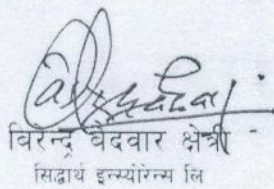 विरेन्द्र बैदवार क्षेत्री
सिद्धार्थ इन्स्योरेन्स लि